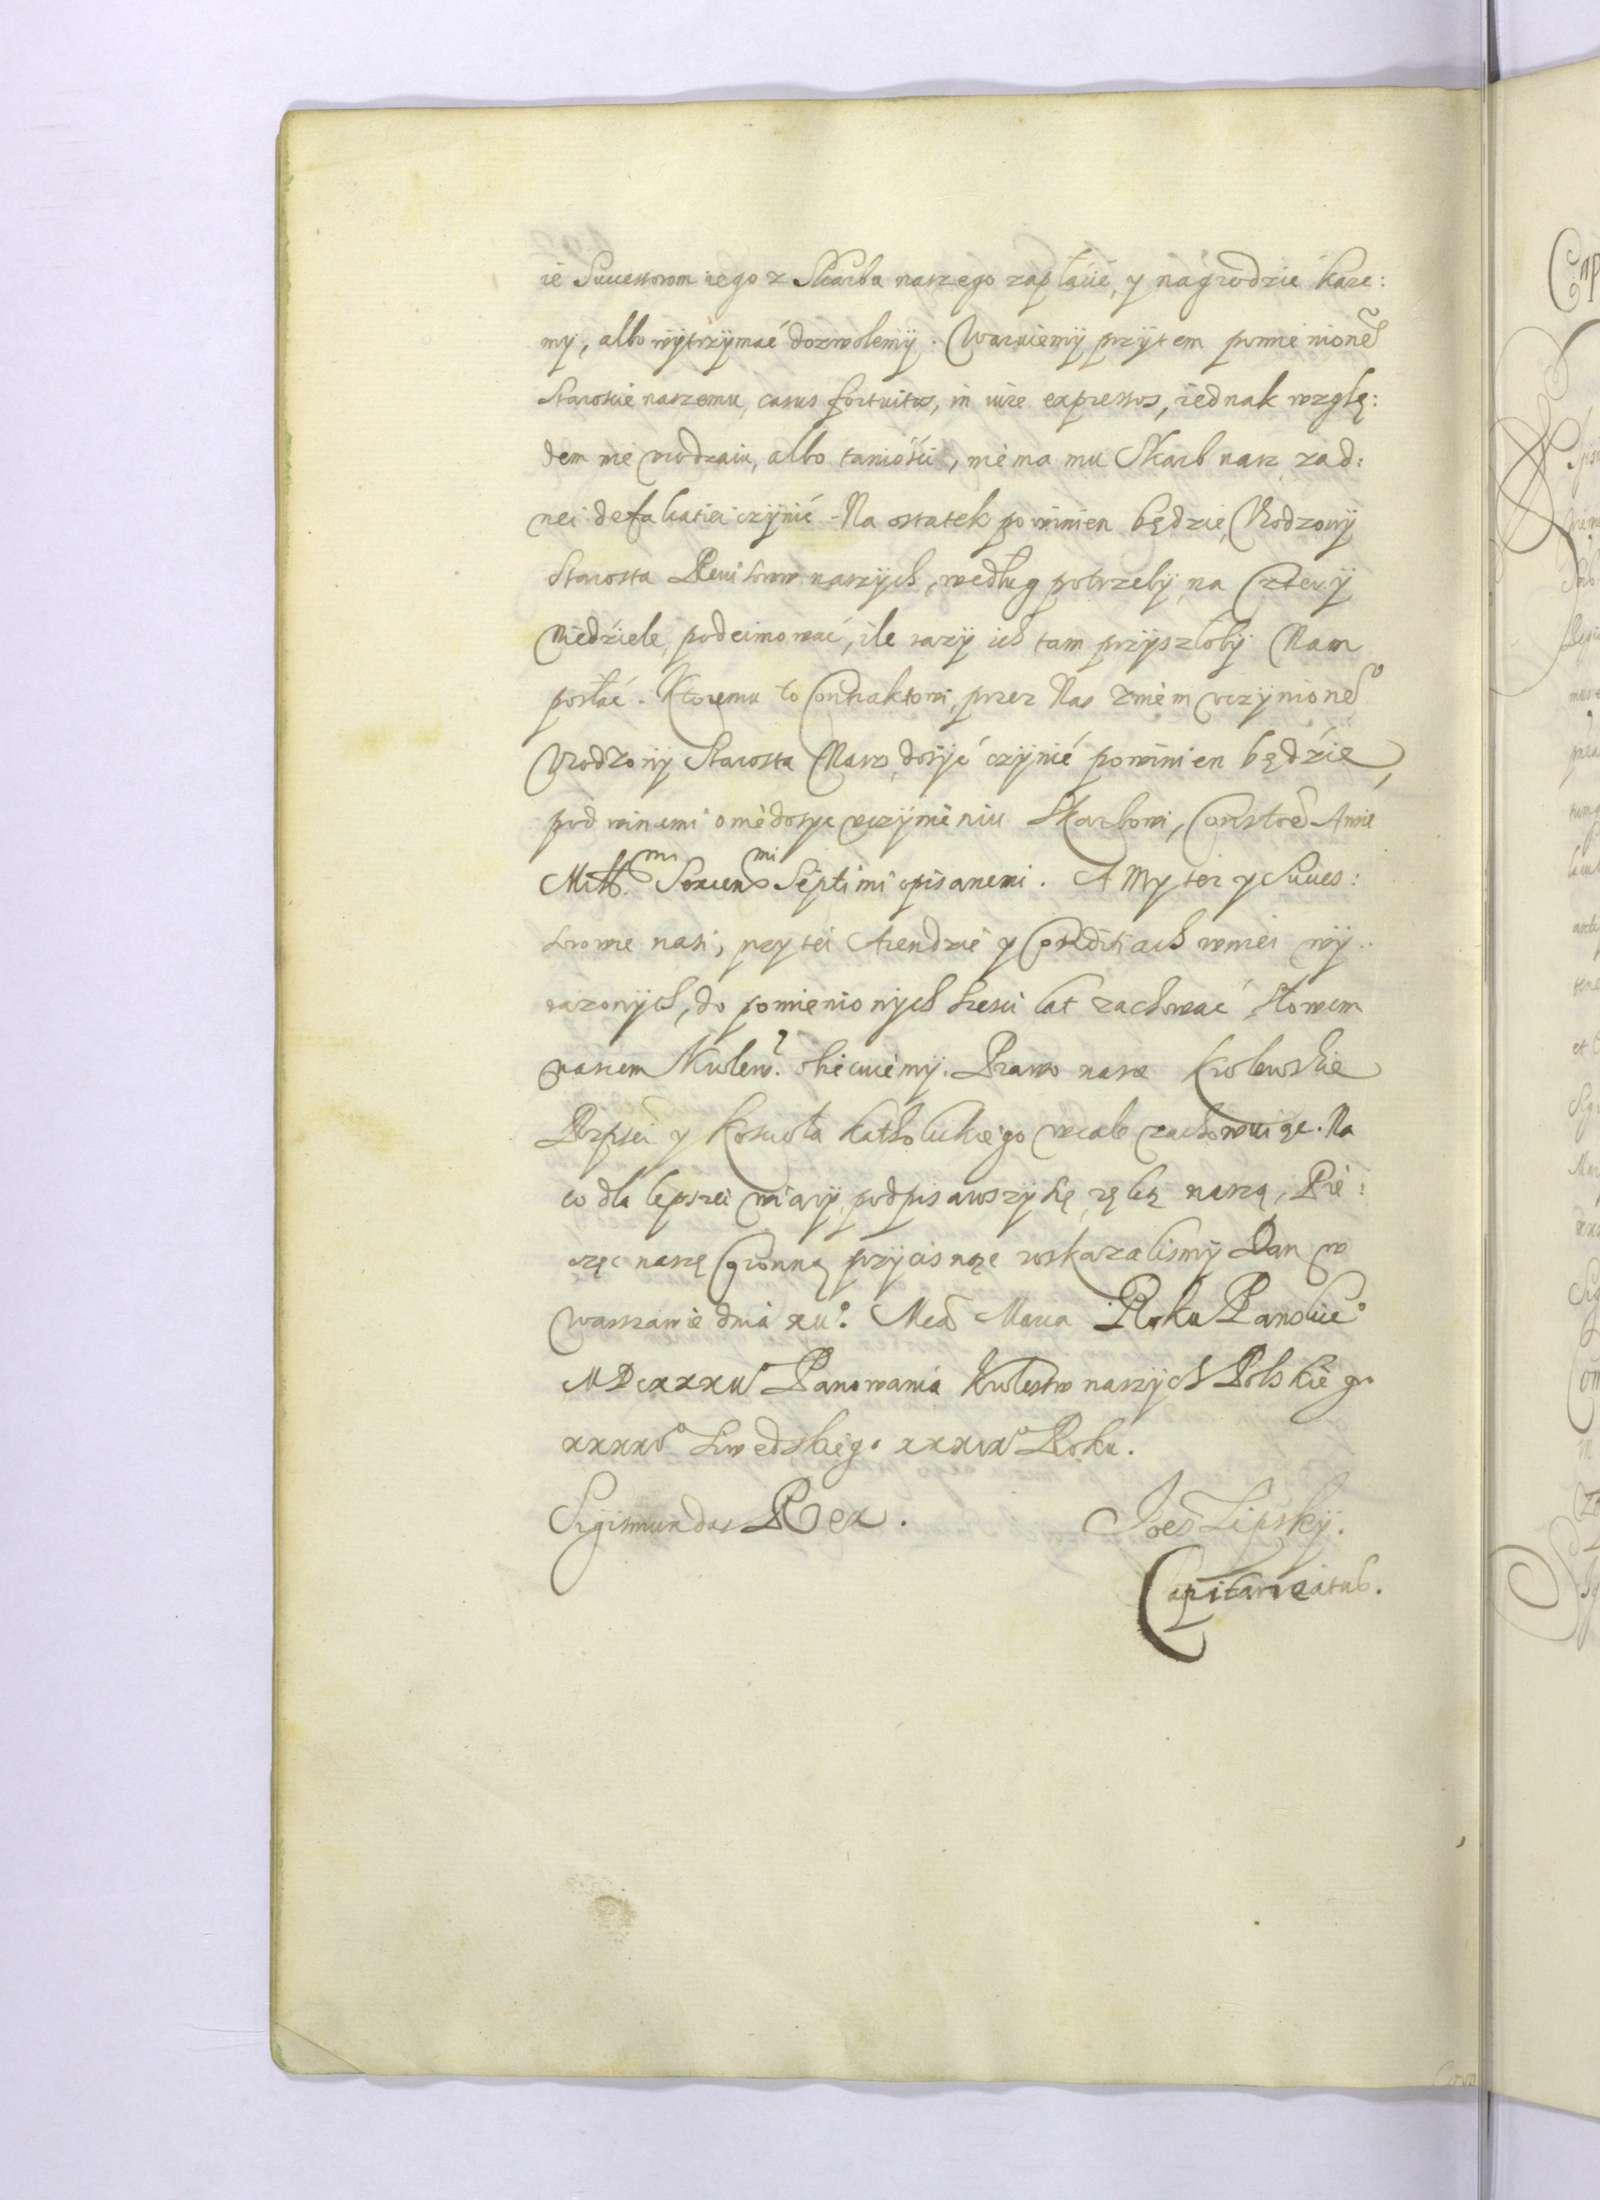 ie Successorom iego z Skarbu naszego zapłacić, y nagrodzić każe:
my, albo wytrzymać dozwolemy. Waruiemy przytem pomienione͠
Staroscie naszemu, casus fortuitos, in iure expressos, iednak wzglę:
dem nie urodzaiu, albo taniości, nie ma mu Skarb nasz zad:
nei defalcatiei czynić. Na ostatek powinien będzie, Urodzony
Starosta Reuisorow naszych, według potrzeby, na Cztery
Niedziele, podeimować, ile razy ich tam przyszłoby Nam
posłać. Ktoremu to Contraktowi, przez Nas z niem uczynione͠o
Urodzony Starosta Nasz, dosyć czynić powinien będzie,
pod winami o niedosyc uczynieniu Skarbowi, Anni
Mill.mi Sexcen.mi Septimi opisanemi. A My tez y Succes:
sorowie nasi, przy tei Arendzie y Conditiach w niei wy:
razonych, do pomienionych szesci lat zachować, słowem
naszem Krolew. obiecuiemy. Prawo nasze Krolewskie
Rzptei y Koscioła Katholickiego wcale zachowuiąc. Na
co dla lepszei wiary, podpisawszy się ręką naszą, Pie:
częc naszę Coronną przycisnąc roskazalismy Dan w
Warszawie dnia Marca Roku Panskie͠o
Panowania Krolestw naszych Polskiego
Szwedskiego Roku.
Sigismundus Rex. Joēs Lipsky.
Capitaneatus.